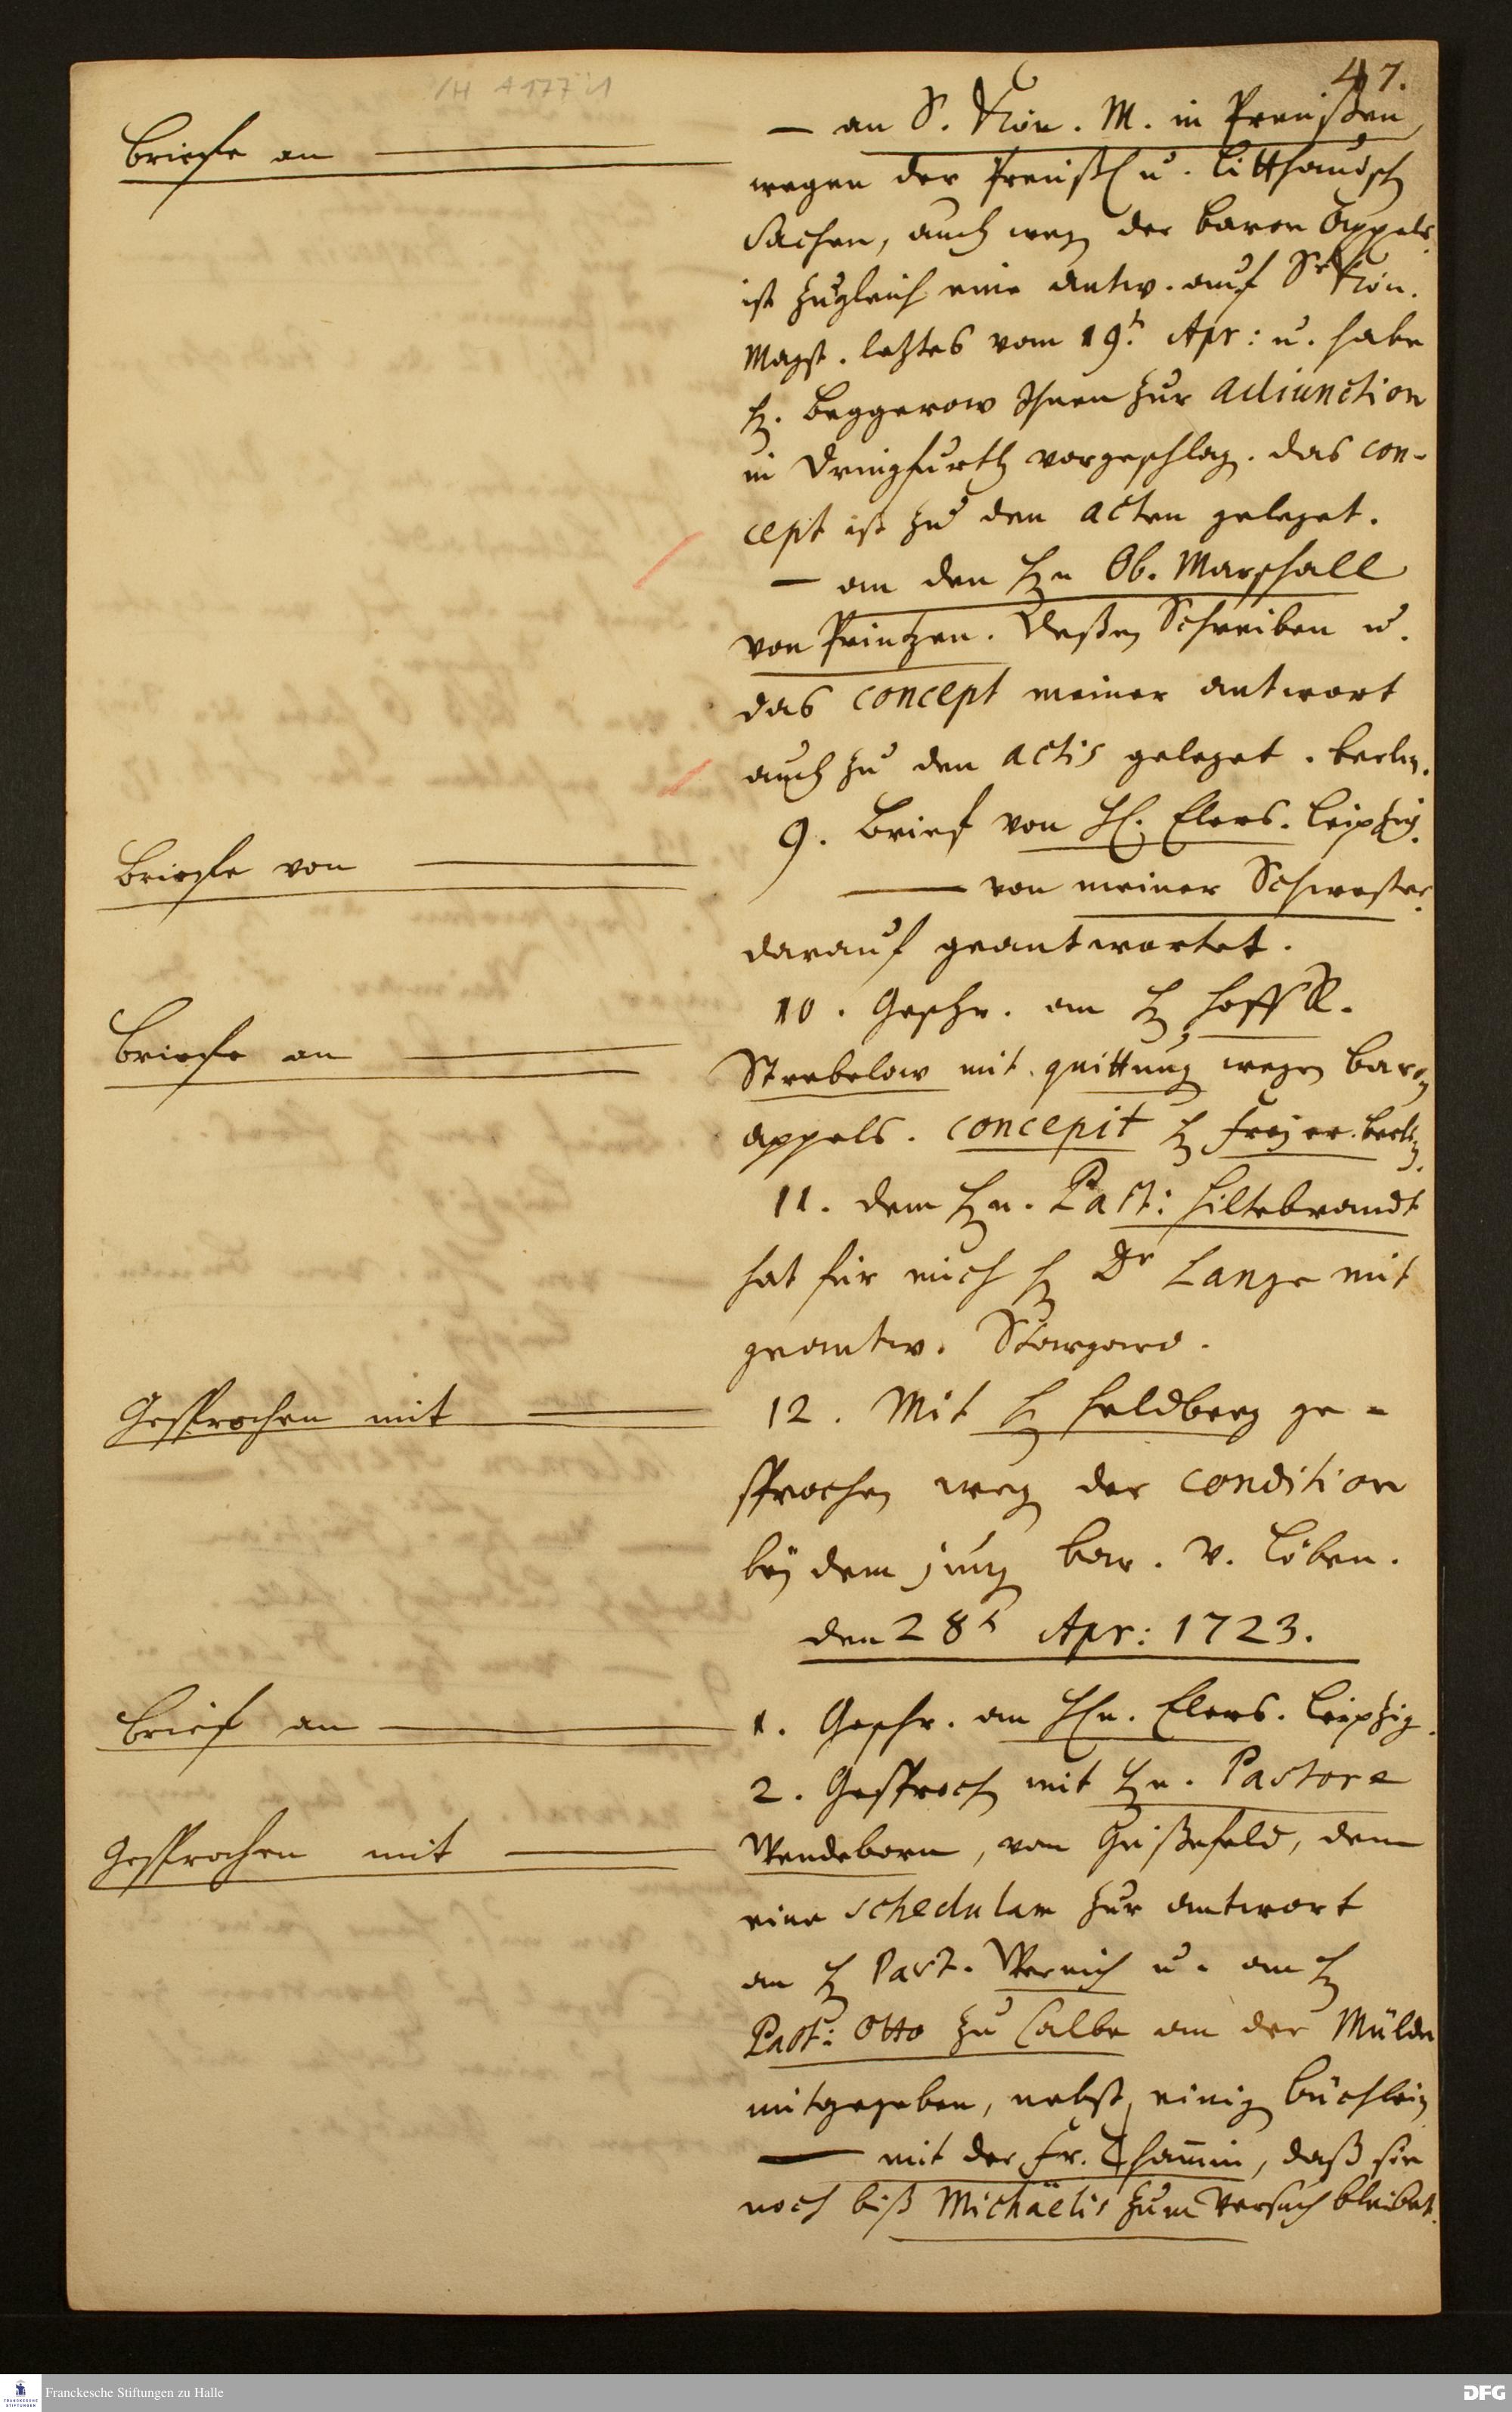 47.
Briefe an
— an S. Kön. M. in Preußen,
wegen der Preußl u. Litthauisch
Sachen, auch weg der Baron Appels
ist zugleich eine antw. auf Sr Kön.
Mayst. letztes vom 19t Apr: u. habe
H. Beggerow Ihnen zur adiunction
in Dringfurth vorgeschlag. das con-
cept ist zu den acten geleget.
— an den Hn Ob. Marschall
von Printzen. Deßen Schreiben u.
das concept meiner antwort
auch zu den actis geleget. Berlin.
Briefe von
9. Brief von H. Elers. Leipzig.
— von meiner Schwester.
darauf geantwortet.
Briefe an
10. Geschr. an H Hoff R.
Strebelow mit quittung wegen Baron
appels. concepit H Freyer. Berlin.
11. dem Hn. Past: Hiltebrandt
hat für mich H Dr Lange mit
geantw. Stargard.
Gesprochen mit
12. Mit H Feldberg ge-
sprochen weg der condition
bey dem jung Bar. v. Löben.
den 28t Apr: 1723.
Brief an
1. Geschr. an Hn. Elers. Leipzig.
Gesprochen mit
2. Gesproch mit Hn. Pastore
Wendeborn, von Güßefeld, dem
eine schedulam zur antwort
an H Past. Wernich u. an H
Past: Otto zu Calbe an der Mülde
mitgegeben, nebst einig Büchlein
— mit der Fr. Thamin, daß sie
noch biß Michäelis zum Versuch bleibet.
Franckesche Stiftungen zu Halle
DFG